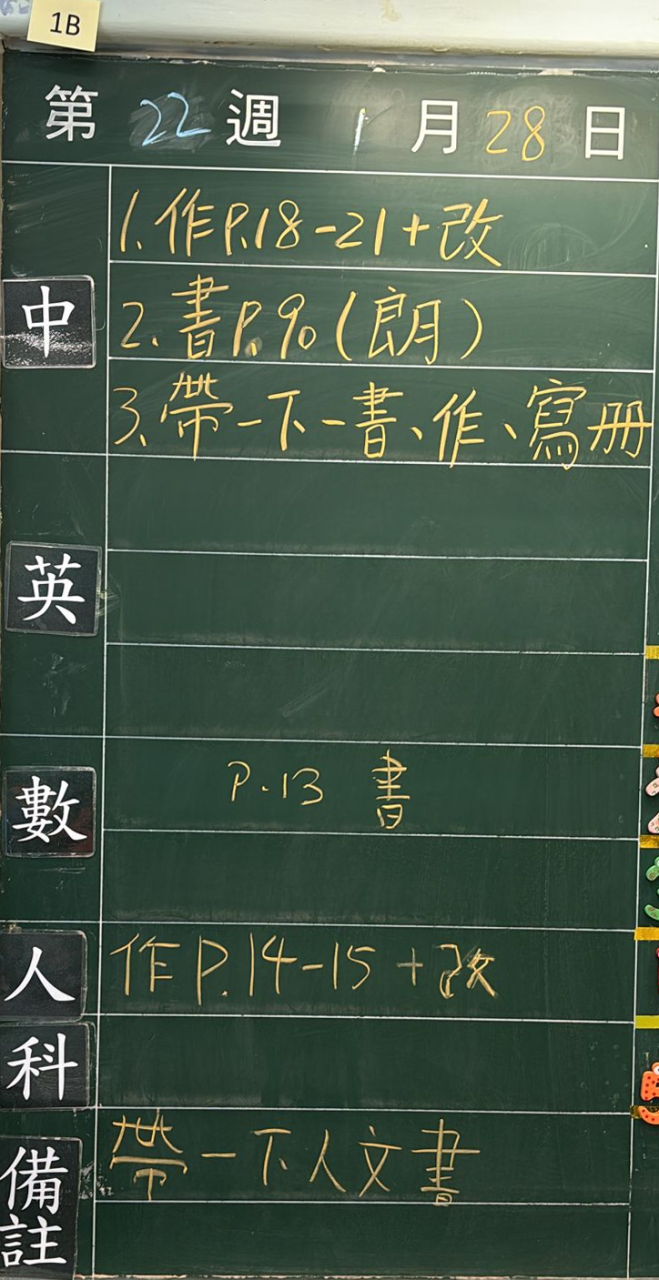 1B
第22週 1月28日
中
1.作P.18-21+改
2.書P.90(朗)
3.帶一下一書、作、寫冊
英
數
P.13 書
人
作P.14-15+改
科
備註
帶一下人文書